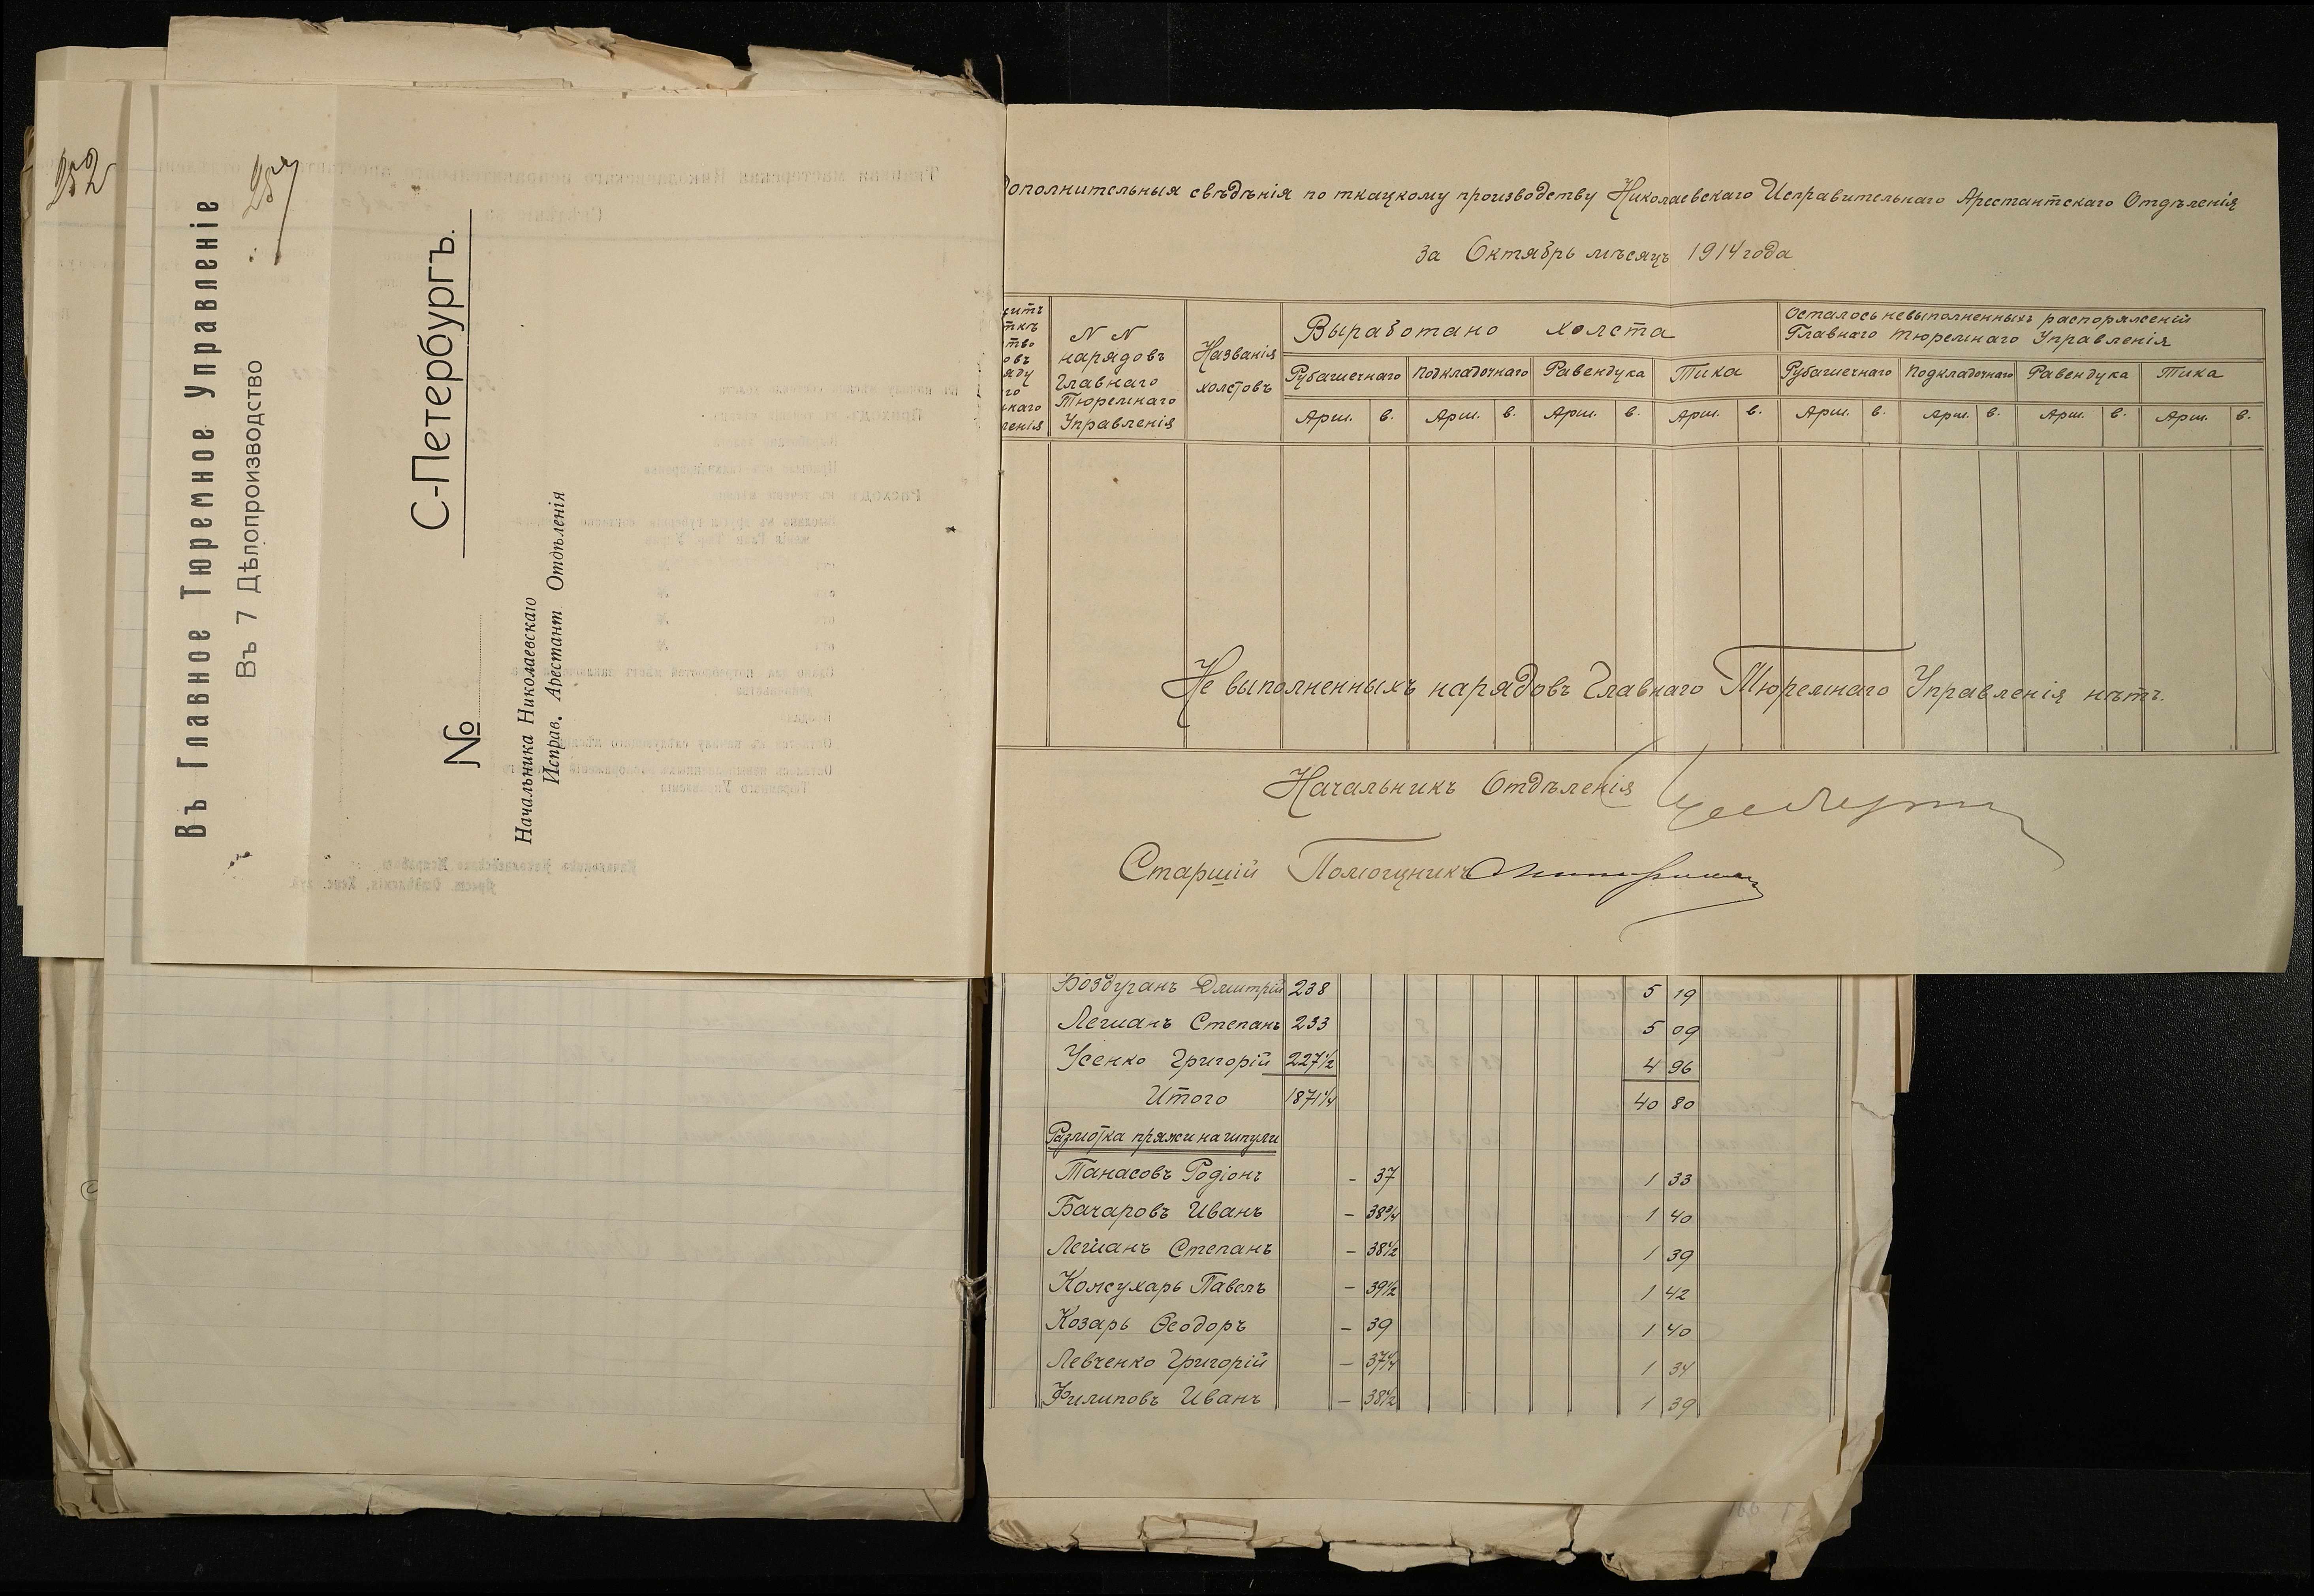 252
257
Въ Главное Тюремное Управленіе
Въ 7 Дѣлопроизводство
С-Петербургъ.
№
Начальника Николаевскаго
Исправ. Арестант. Отдѣленія
Дополнительныя свѣдѣнія по ткацкому производству Николаевскаго Исправительнаго Арестантскаго Отдѣленія
за Октябрь мѣсяцъ 1914 года
N N нарядовъ Главнаго Тюремнаго Управленія
Названія холстовъ
Выработано холста
Осталось невыполненныхъ распоряженій
Главнаго Тюремнаго Управленія
Рубашечнаго Подкладочнаго Равендука Тика Рубашечнаго Подкладочнаго Равендука Тика
Арш. в. Арш. в. Арш. в. Арш. в. Арш. в. Арш. в. Арш. в. Арш. в.
Не выполненныхъ нарядовъ Главнаго Тюремнаго Управленія нѣтъ.
Начальникъ Отдѣленія
Старшій Помощникъ
Возбуранъ Дмитрій 238 5 19
Легианъ Степанъ 233 5 09
Усенко Григорій 227 1/2 4 96
Итого 1871 1/4 40 80
Размотка пряжи на шпули
Танасовъ Родіонъ - 37 1 33
Бачаровъ Иванъ - 38 3/4 1 40
Легианъ Степанъ - 38 1/2 1 39
Кожухарь Павелъ - 39 1/2 1 42
Козарь Ѳеодоръ - 39 1 40
Левченко Григорій - 37 1/4 1 34
Филиповъ Иванъ - 38 1/2 1 39